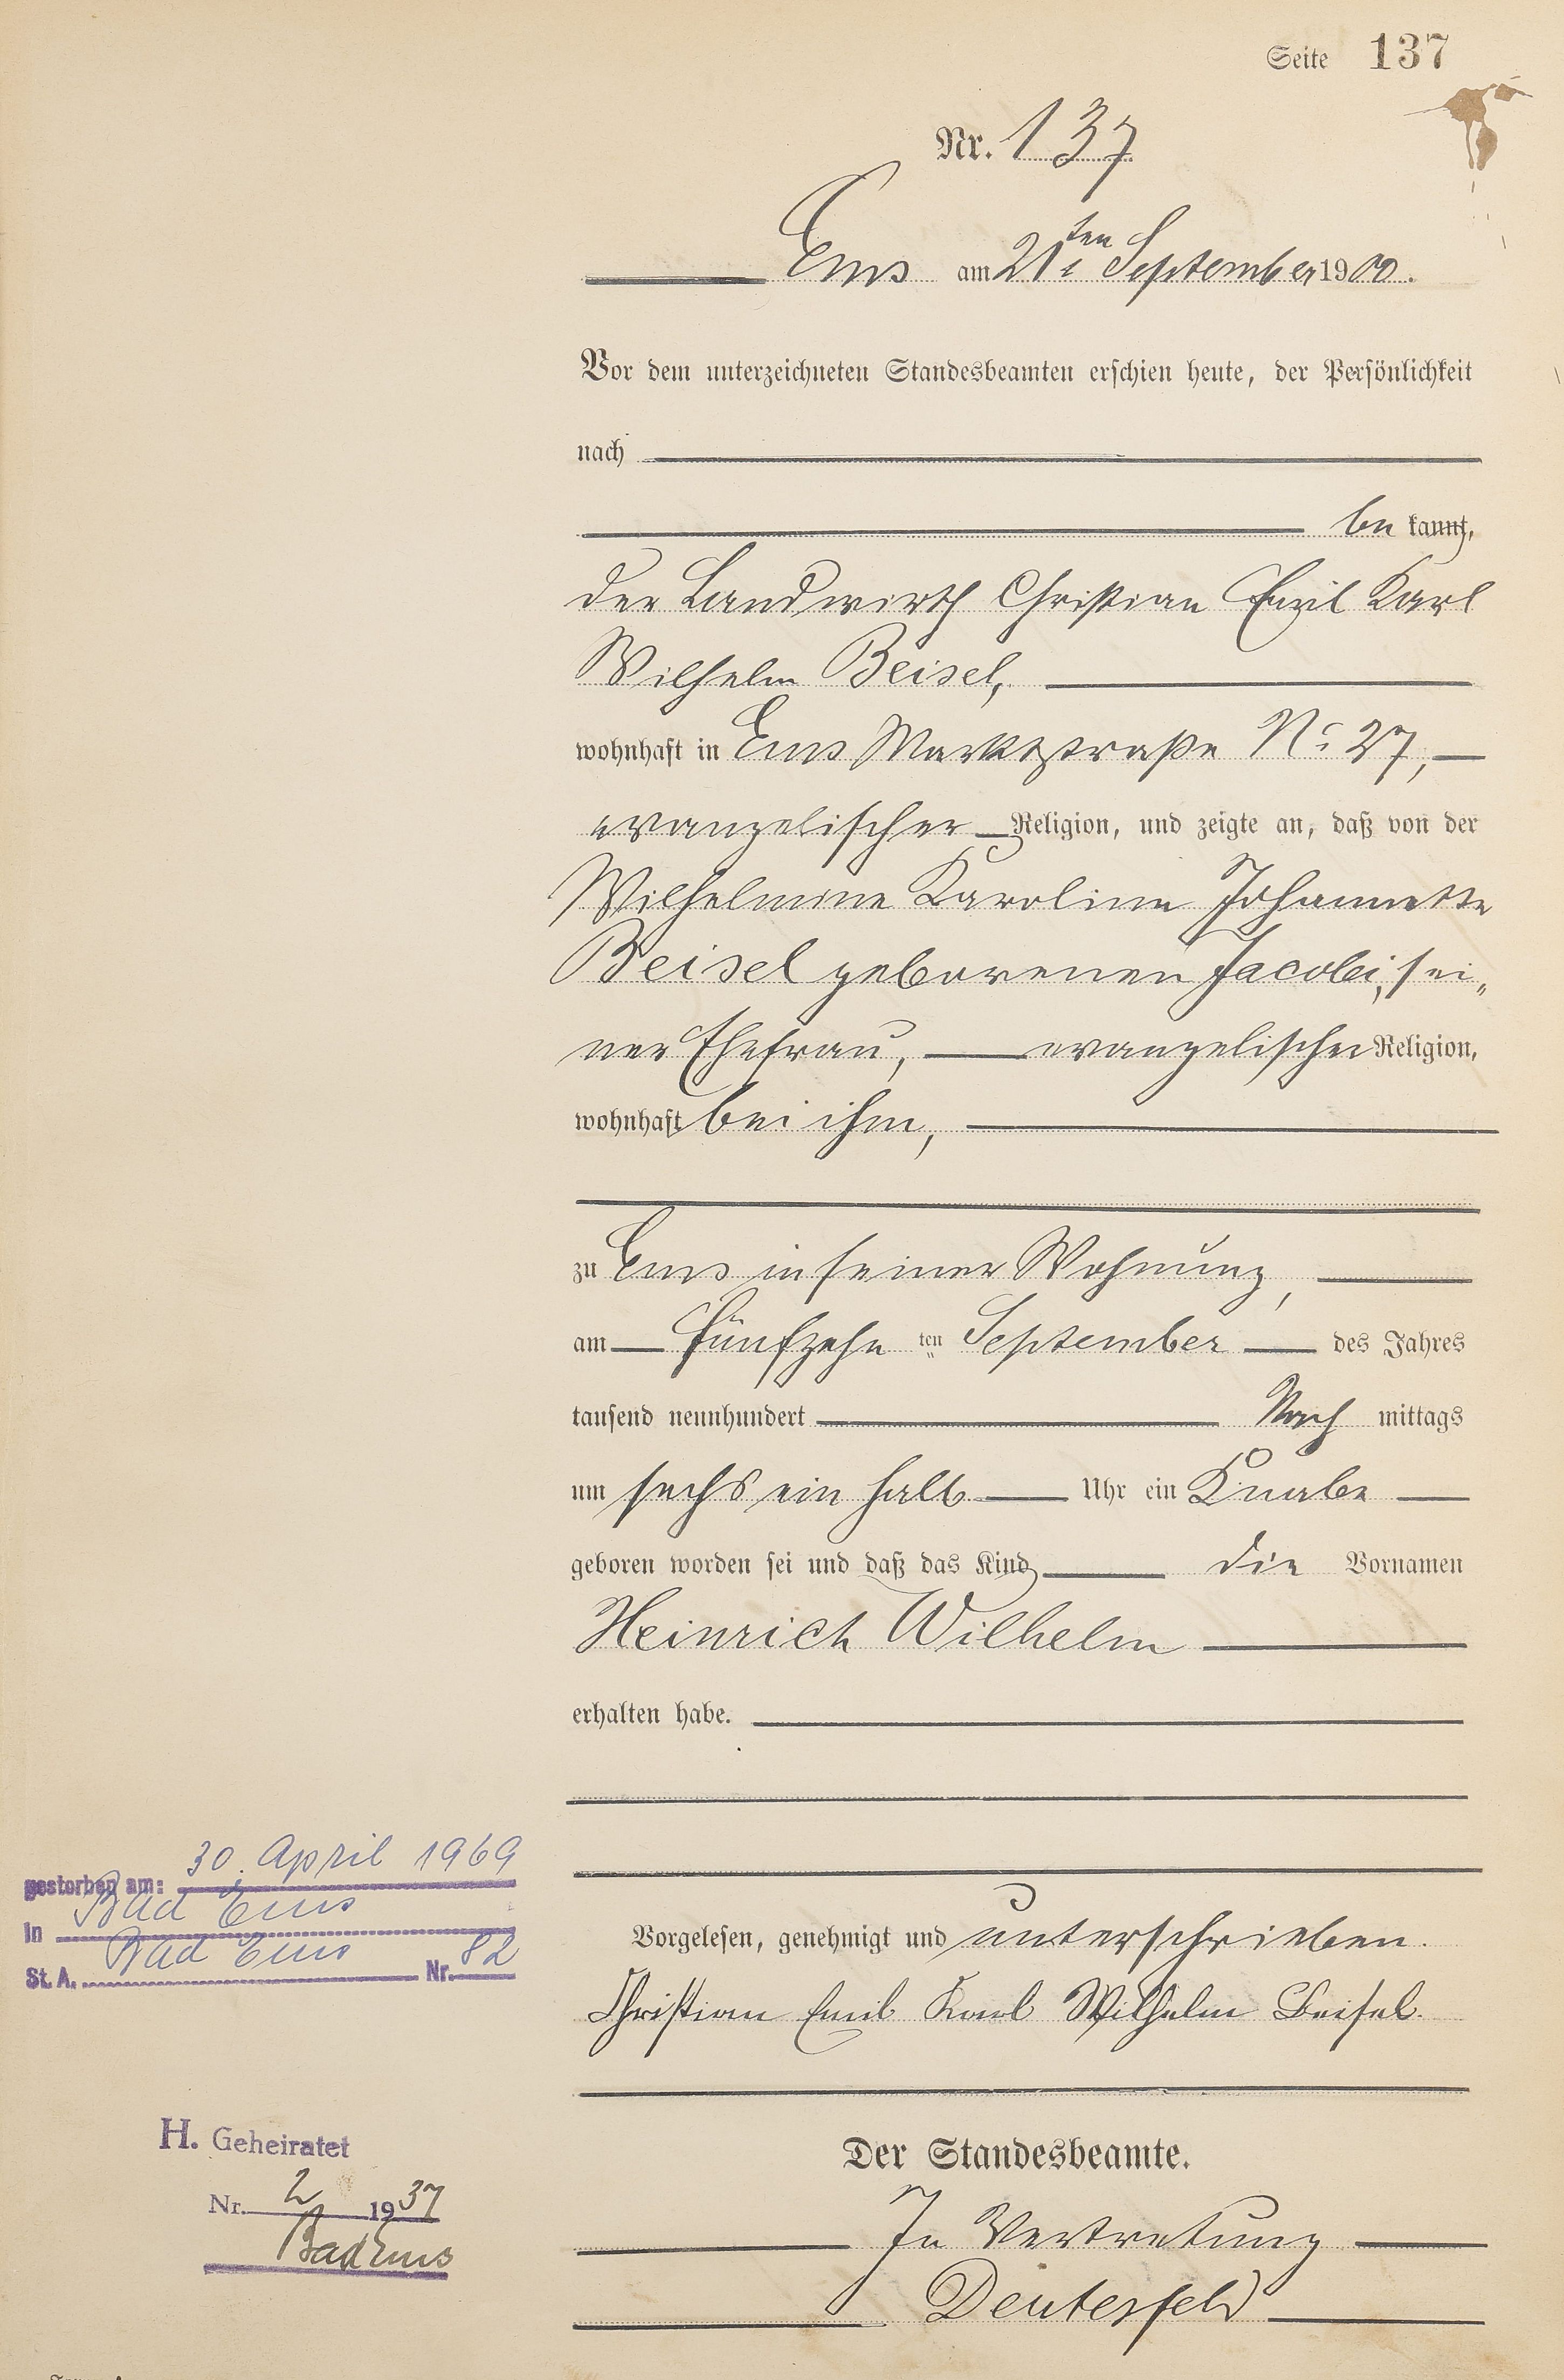 Seite 137
Nr. 137
Ems am 21ten September 1900.
Vor dem unterzeichneten Standesbeamten erschien heute, der Persönlichkeit
nach
be kannt,
der Landwirth Christian Emil Karl
Wilhelm Beisel,
wohnhaft in Ems Marktstraße No 27,
evangelischer Religion, und zeigte an, daß von der
Wilhelmine Karoline Johannette
Beisel geborenen Jacobi, sei„
ner Ehefrau, evangelischer Religion,
wohnhaft bei ihm,
zu Ems in seiner Wohnung,
am fünfzehn ten September des Jahres
tausend neunhundert Nach mittags
um sechs ein halb Uhr ein Knabe
geboren worden sei und daß das Kind die Vornamen
Heinrich Wilhelm
erhalten habe.
gestorben am: 30. April 1969
in Bad Ems
St. A. Bad Ems Nr. 82
Vorgelesen, genehmigt und unterschrieben.
Christian Emil Karl Wilhelm Beisel.
H. Geheiratet
Nr. 2 1937
Bad Ems
Der Standesbeamte.
In Vertretung
Deutesfeld